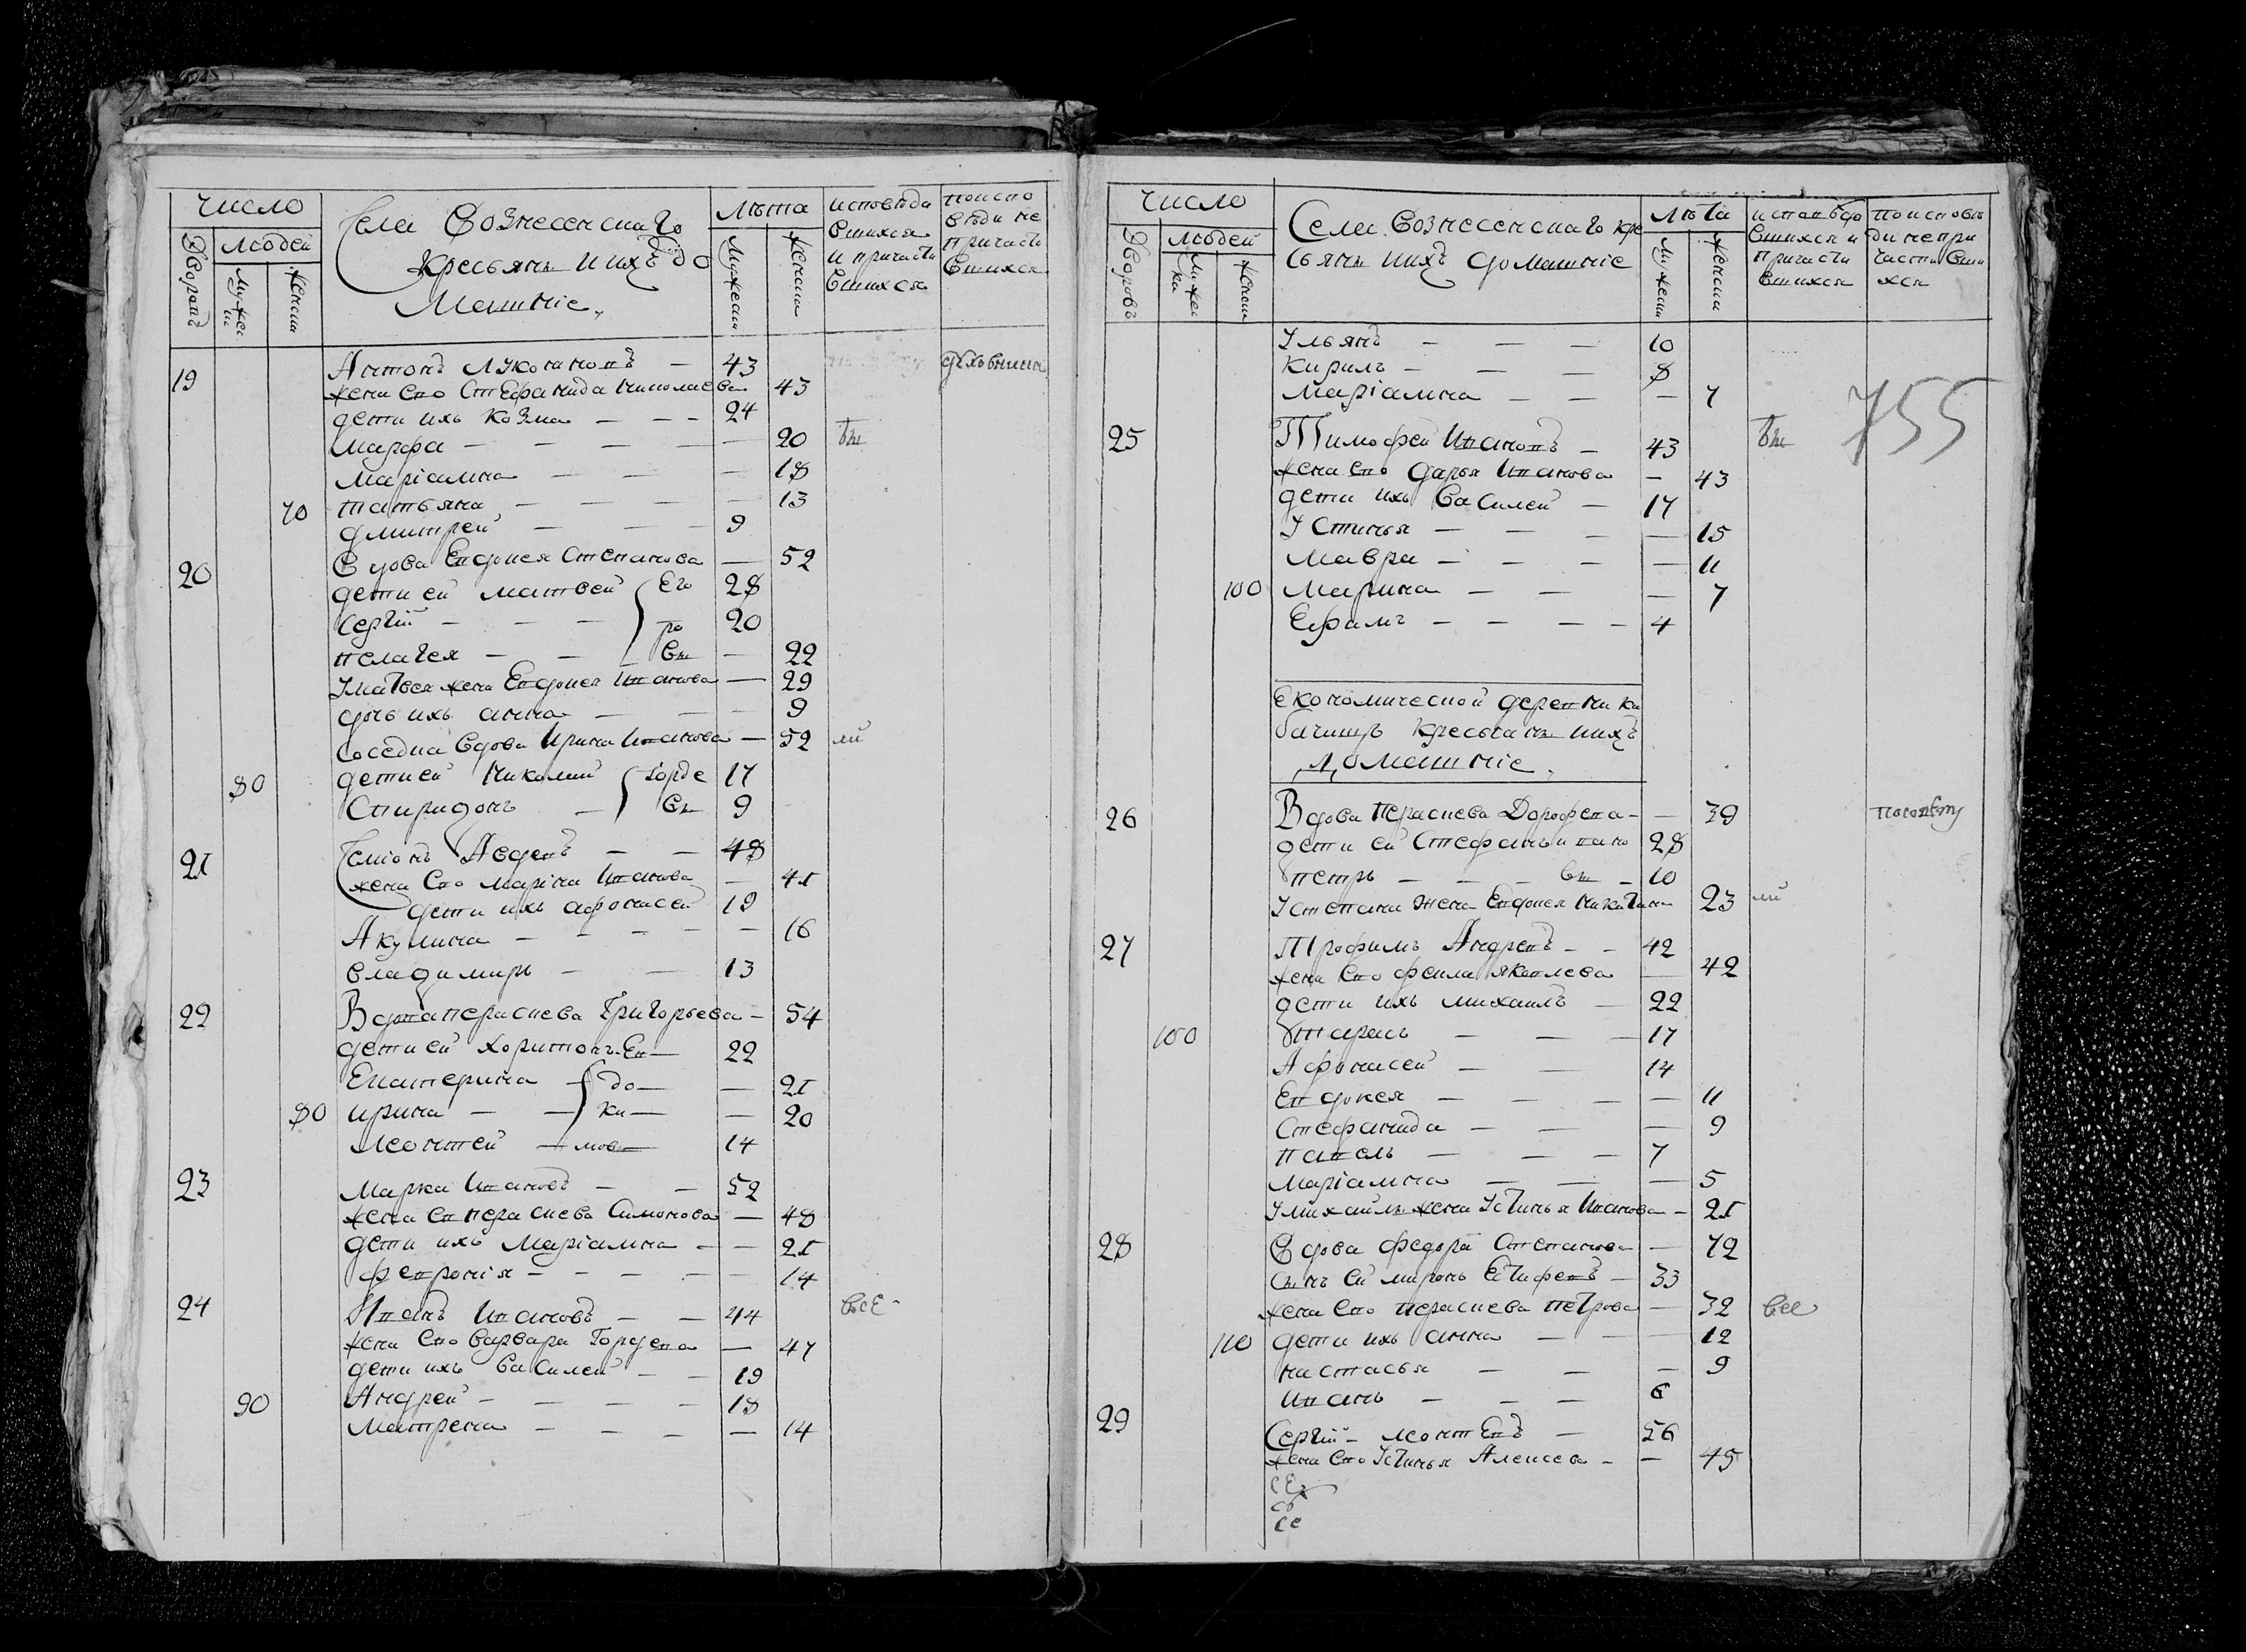 число
людей
Дворовъ
Мужес
Женски
Села Вознесенскаго
Кресьянъ и ихъ до
машніе.
лѣта
Мужески
Женски
исповѣда
вшихся
и причасти
вшихся
поиспо
вѣди не
причасти
вшихся
19 Антонъ Лукояновъ — 43
жена ево Стефанида Николаева 43
дети ихъ Козма — — — 24
Марфа — — — — 20 вы
Маріамна — — — 18
70 татьяна — — — — 13
дмитрей — — — 9
20 Вдова Евдокея Степанова — 52
дети ей матвей Его 28
Сергій — — — ро 20
пелагея — — вы — 22
У матвея жена Евдокея Иванова — 29
дочь ихъ анна — — — 9
Соседка вдова Ирина Иванова — 52 ли
80 дети ей Николай горде 17
Спиридонъ — вы 9
21 Симіонъ Авдевъ — — 48
жена ево маріна Иванова — 41
дети ихъ афонасей 19
Акулина — — — — 16
владимиръ — — 13
22 Вдова пераскева Григорьева — 54
дети ей Харитонъ Ев — 22
Екатерина — до — — 21
80 ирина — — ки — — 20
Леонтей — мовы 14
23 Марка Ивановъ — — 52
жена ев пераскева Симонова — 48
дети ихъ Маріамна — — 21
февронія — — — — 14
24 Иванъ Ивановъ — — 44 всѣ
жена ево варвара Гордева — 47
дети ихъ Василей — — 19
90 Андрей — — — — 18
Матрена — — — — 14
число
людей
Дворовъ
Мужес
ка
Женски
Села Вознесенскаго кре
сьянъ ихъ домашніе
лѣта
Мужески
Женски
исповѣда
вшихся и
причасти
вшихся
поисповѣ
ди непри
частивши
хся
755
Ульянъ — — — 10
Кирилъ — — — 8
Маріамна — — — 7
25 Тимофей Ивановъ — 43 вы
жена ево дарья Иванова — 43
дети ихъ Василей — 17
Устинья — — — — 15
Мавра — — — — 11
100 Марина — — — 7
Ефимъ — — — — 4
економической деревни ка
бачищъ кресьянъ ихъ
Домашніе.
26 Вдова Пераскева Дорофева — — 39
дети ей Стефанъ ивано 28
петръ — — — вы — 10
У степана жена Евдокея Никитина 23 ли
27 Трофимъ Андревъ — — 42
жена ево фекла яковлева — 42
дети ихъ михаилъ — 22
100 тарасъ — — — 17
Афонасей — — 14
Евдокея — — — — 11
Стефанида — — — 9
павелъ — — — 7
Маріамна — — — 5
У михаилы жена Устинья Иванова — 21
28 Вдова федора Степанова — 72
сынъ ей миронъ Естифевъ — 33
жена ево пераскева петрова — 32 все
110 дети ихъ анна — — — 12
настасья — — — 9
Иванъ — — — 6
29 Сергій — леонтевъ — 56
жена ево Устинья Алексева — — 45